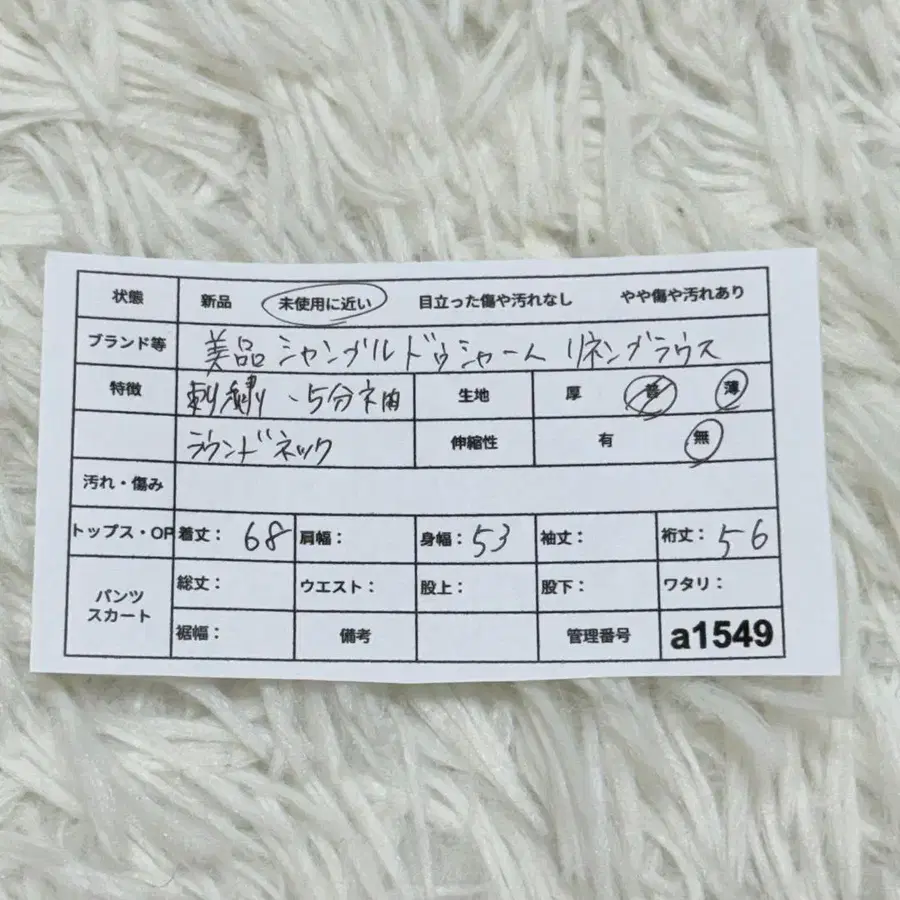 状態 新品 未使用に近い 目立った傷や汚れなし やや傷や汚れあり
ブランド等 美品 シャンブルドゥシャーム リネンブラウス
特徴 刺繍、5分袖 生地 厚 普 薄
ラウンドネック 伸縮性 有 無
汚れ・傷み
トップス・OP 着丈： 68 肩幅： 身幅： 53 袖丈： 裄丈： 56
パンツ スカート 総丈： ウエスト： 股上： 股下： ワタリ：
裾幅： 備考 管理番号 a1549